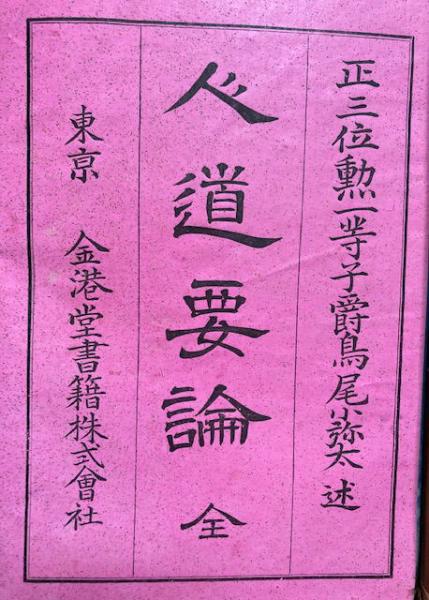 正三位勲一等子爵鳥尾小弥太 述
人道要論 全
東京 金港堂書籍株式會社